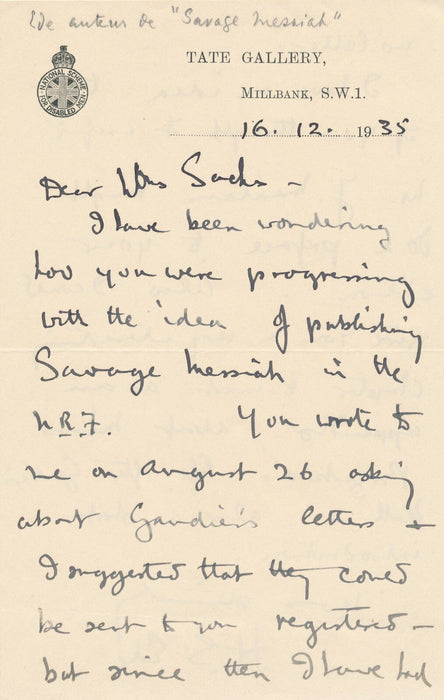 de auteur de "Savage Messiah"
NATIONAL SCHEME
FOR DISABLED MEN
TATE GALLERY,
MILLBANK, S.W.1.
16. 12. 1935
Dear Mrs Sachs –
I have been wondering
how you were progressing
with the idea of publishing
Savage Messiah in the
N.R.F. You wrote to
me on August 26 asking
about Gaudier's letters +
I suggested that they could
be sent to you registered –
but since then I have had